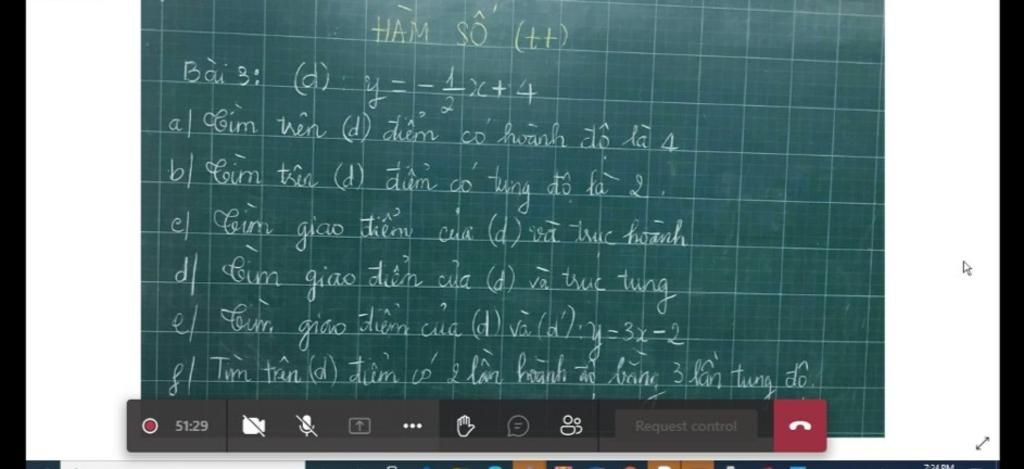 HÀM SỐ (tt)
Bài 3: (d): y = -1/2 x + 4
a/ Tìm trên (d) điểm có hoành độ là 4
b/ Tìm trên (d) điểm có tung độ là 2.
c/ Tìm giao điểm của (d) và trục hoành
d/ Tìm giao điểm của (d) và trục tung
e/ Tìm giao điểm của (d) và (d'): y = 3x - 2
f/ Tìm trên (d) điểm có 2 lần hoành độ bằng 3 lần tung độ.
51:29
Request control
7:24 PM